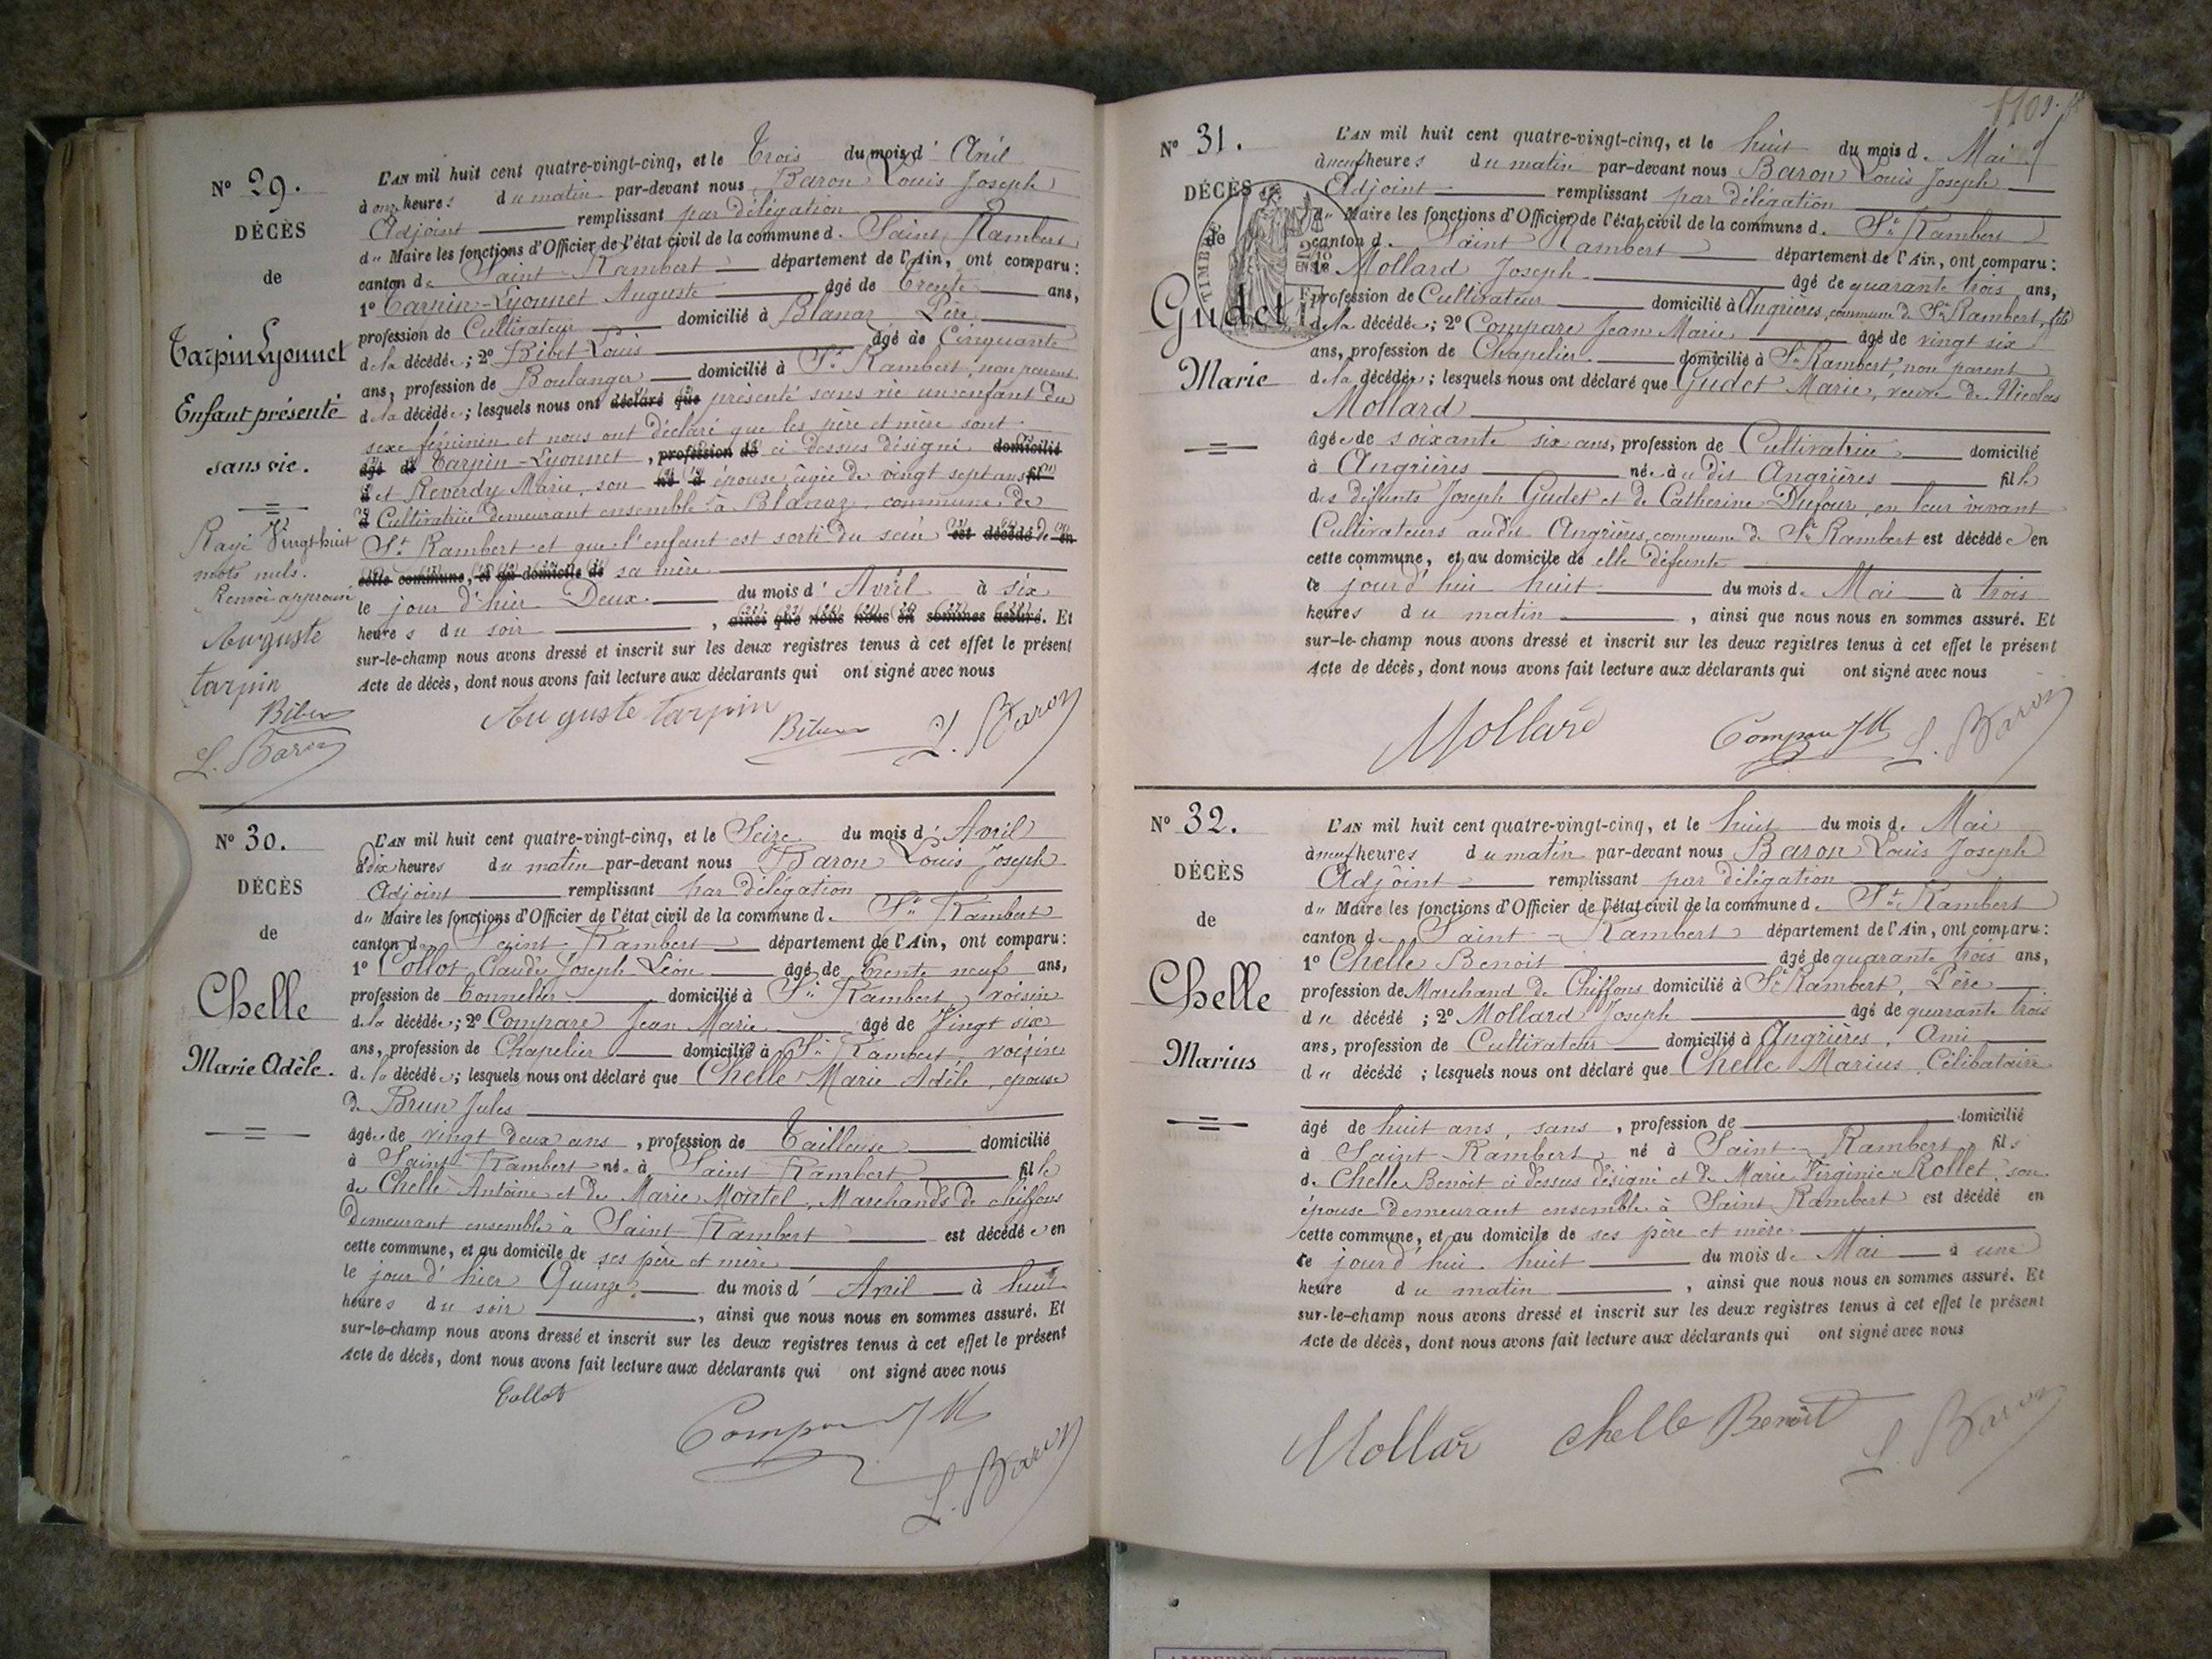 N° 29.
DÉCÈS
de
Tarpin Lyonnet
Enfant présenté
sans vie.
Rayé Vingt huit
mots nuls.
Renvoi approuvé
Auguste
tarpin
Bibet
L. Baron
L'AN mil huit cent quatre-vingt-cinq, et le Trois du mois d' Avril
à onze heures du matin par-devant nous Baron Louis Joseph
Adjoint remplissant par délégation
du Maire les fonctions d'Officier de l'état civil de la commune de Saint Rambert
canton de Saint-Rambert département de l'Ain, ont comparu :
1° Tarpin-Lyonnet Auguste âgé de Trente ans,
profession de Cultivateur domicilié à Blanaz Père
de la décédée ; 2° Bibet Louis âgé de Cinquante
ans, profession de Boulanger domicilié à St Rambert, non parent
de la décédée ; lesquels nous ont déclaré que présenté sans vie un enfant du
sexe féminin et nous ont déclaré que les père et mère sont
âgé de Tarpin-Lyonnet, profession de ci dessus désigné domicilié
à et Reverdy Marie, son né à épouse, âgée de vingt sept ans fil
d Cultivatrice demeurant ensemble à Blanaz, commune de
St Rambert et que l'enfant est sorti du sein est décédé de en
cette commune, et au domicile de sa mère
le jour d'hier Deux du mois d' Avril à six
heures du soir , ainsi que nous nous en sommes assuré. Et
sur-le-champ nous avons dressé et inscrit sur les deux registres tenus à cet effet le présent
Acte de décès, dont nous avons fait lecture aux déclarants qui ont signé avec nous
Auguste tarpin Bibet L. Baron
N° 30.
DÉCÈS
de
Chelle
Marie Adèle.
L'AN mil huit cent quatre-vingt-cinq, et le Seize du mois d' Avril
à dix heures du matin par-devant nous Baron Louis Joseph
Adjoint remplissant par délégation
du Maire les fonctions d'Officier de l'état civil de la commune de St Rambert
canton de Saint Rambert département de l'Ain, ont comparu :
1° Collot Claude Joseph Léon âgé de Trente neuf ans,
profession de Tonnelier domicilié à St Rambert, voisin
de la décédée ; 2° Compare Jean Marie âgé de Vingt six
ans, profession de Chapelier domicilié à St Rambert voisin
de la décédée ; lesquels nous ont déclaré que Chelle Marie Adèle, épouse
de Brun Jules
âgée de vingt deux ans, profession de Tailleuse domicilié
à Saint Rambert née à Saint Rambert fille
de Chelle Antoine et de Marie Montel, Marchands de chiffons
demeurant ensemble à Saint Rambert est décédée en
cette commune, et au domicile de ses père et mère
le jour d'hier Quinze du mois d' Avril à huit
heures du soir , ainsi que nous nous en sommes assuré. Et
sur-le-champ nous avons dressé et inscrit sur les deux registres tenus à cet effet le présent
Acte de décès, dont nous avons fait lecture aux déclarants qui ont signé avec nous
Collot
Compare JM
L. Baron
N° 31.
DÉCÈS
de
Gudet
Marie
TIMBRE
L'AN mil huit cent quatre-vingt-cinq, et le huit du mois de Mai
à neuf heures du matin par-devant nous Baron Louis Joseph
Adjoint remplissant par délégation
du Maire les fonctions d'Officier de l'état civil de la commune de St Rambert
canton de Saint Rambert département de l'Ain, ont comparu :
1° Mollard Joseph âgé de quarante trois ans,
profession de Cultivateur domicilié à Angrières, commune de St Rambert, fils
de la décédée ; 2° Compare Jean Marie âgé de vingt six
ans, profession de Chapelier domicilié à St Rambert, non parent
de la décédée ; lesquels nous ont déclaré que Gudet Marie, veuve de Nicolas
Mollard
âgée de soixante six ans, profession de Cultivatrice domicilié
à Angrières née au dit Angrières fille
des défunts Joseph Gudet et de Catherine Dufour, en leur vivant
Cultivateurs audit Angrières, commune de St Rambert est décédée en
cette commune, et au domicile de elle défunte
ce jourd'hui huit du mois de Mai à trois
heures du matin , ainsi que nous nous en sommes assuré. Et
sur-le-champ nous avons dressé et inscrit sur les deux registres tenus à cet effet le présent
Acte de décès, dont nous avons fait lecture aux déclarants qui ont signé avec nous
Mollard Compare JM L. Baron
N° 32.
DÉCÈS
de
Chelle
Marius
L'AN mil huit cent quatre-vingt-cinq, et le huit du mois de Mai
à neuf heures du matin par-devant nous Baron Louis Joseph
Adjoint remplissant par délégation
du Maire les fonctions d'Officier de l'état civil de la commune de St Rambert
canton de Saint-Rambert département de l'Ain, ont comparu :
1° Chelle Benoit âgé de quarante trois ans,
profession de Marchand de Chiffons domicilié à St Rambert, Père
du décédé ; 2° Mollard Joseph âgé de quarante trois
ans, profession de Cultivateur domicilié à Angrières, Ami
du décédé ; lesquels nous ont déclaré que Chelle Marius, Célibataire
âgé de huit ans, sans, profession de domicilié
à Saint-Rambert né à Saint-Rambert fils
de Chelle Benoit ci dessus désigné et de Marie Virginie Rollet, son
épouse demeurant ensemble à Saint Rambert est décédé en
cette commune, et au domicile de ses père et mère
ce jourd'hui huit du mois de Mai à une
heure du matin , ainsi que nous nous en sommes assuré. Et
sur-le-champ nous avons dressé et inscrit sur les deux registres tenus à cet effet le présent
Acte de décès, dont nous avons fait lecture aux déclarants qui ont signé avec nous
Mollar Chelle Benoit L. Baron